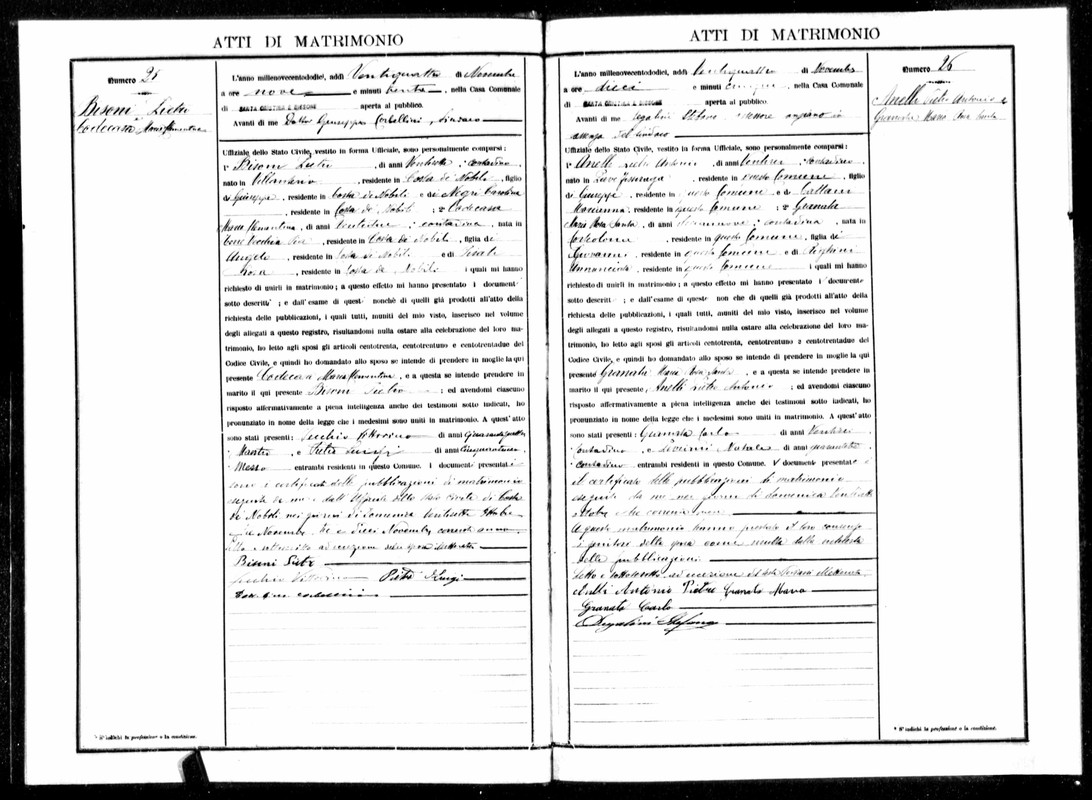 ATTI DI MATRIMONIO
Numero 25
Bisoni Pietro
Codecasa Maria Clementina
L'anno millenovecentododici, addì Ventiquattro di Novembre
a ore nove e minuti trenta, nella Casa Comunale
di SANTA CRISTINA E BISSONE aperta al pubblico.
Avanti di me Dottor Giuseppe Corbellini, Sindaco
Uffiziale dello Stato Civile, vestito in forma Ufficiale, sono personalmente comparsi:
1° Bisoni Pietro, di anni Ventisette, contadino
nato in Villanterio, residente in Costa de' Nobili, figlio
di Giuseppe, residente in Costa de' Nobili e di Negri Carolina
, residente in Costa de' Nobili; 2° Codecasa
Maria Clementina, di anni, contadina, nata in
, residente in Costa de' Nobili, figlia di
Angelo, residente in Costa de' Nobili e di
Rosa, residente in Costa de' Nobili i quali mi hanno
richiesto di unirli in matrimonio; a questo effetto mi hanno presentato i document
sotto descritti; e dall'esame di quest nonchè di quelli già prodotti all'atto della
richiesta delle pubblicazioni, i quali tutti, muniti del mio visto, inserisco nel volume
degli allegati a questo registro, risultandomi nulla ostare alla celebrazione del loro ma-
trimonio, ho letto agli sposi gli articoli centotrenta, centotrentuno e centotrentadue del
Codice Civile, e quindi ho domandato allo sposo se intende di prendere in moglie la qui
presente Codecasa Maria Clementina, e a questa se intende prendere in
marito il qui presente Bisoni Pietro; ed avendomi ciascuno
risposto affermativamente a piena intelligenza anche dei testimoni sotto indicati, ho
pronunziato in nome della legge che i medesimi sono uniti in matrimonio. A quest'atto
sono stati presenti: Vittorino di anni Quarantaquattro
Maestro, e Pietra Luigi di anni Cinquantanove
Messo entrambi residenti in questo Comune. I documenti presentati
sono i certificati delle pubblicazioni di matrimonio
eseguite da me e dall'Uffiziale dello Stato Civile di Costa
de' Nobili nei giorni di domenica ventisette Ottobre
e Novembre corrente anno
Bisoni Pietro
Vittorino Pietra Luigi
* S'indichi la professione o la condizione.
ATTI DI MATRIMONIO
Numero 26
Anelli Pietro Antonio e
Granata Maria Rosa Santa
L'anno millenovecentododici, addì Ventiquattro di Novembre
a ore dieci e minuti cinque, nella Casa Comunale
di SANTA CRISTINA E BISSONE aperta al pubblico.
Avanti di me Degalini Stefano Assessore anziano in
assenza del Sindaco
Uffiziale dello Stato Civile, vestito in forma Ufficiale, sono personalmente comparsi:
1° Anelli Pietro Antonio, di anni, contadino
nato in Pieve Porto, residente in questo Comune, figlio
di Giuseppe, residente in questo Comune e di Cattani
Marianna, residente in questo Comune; 2° Granata
Maria Rosa Santa, di anni diciannove, contadina, nata in
Corteolona, residente in questo Comune, figlia di
Giovanni, residente in questo Comune e di Righini
Annunciata, residente in questo Comune i quali mi hanno
richiesto di unirli in matrimonio; a questo effetto mi hanno presentato i documenti
sotto descritti; e dall'esame di quest non che di quelli già prodotti all'atto della
richiesta delle pubblicazioni, i quali tutti, muniti del mio visto, inserisco nel volume
degli allegati a questo registro, risultandomi nulla ostare alla celebrazione del loro ma-
trimonio, ho letto agli sposi gli articoli centotrenta, centotrentuno e centotrentadue del
Codice Civile, e quindi ho domandato allo sposo se intende di prendere in moglie la qui
presente Granata Maria Rosa Santa, e a questa se intende prendere in
marito il qui presente Anelli Pietro Antonio; ed avendomi ciascuno
risposto affermativamente a piena intelligenza anche dei testimoni sotto indicati, ho
pronunziato in nome della legge che i medesimi sono uniti in matrimonio. A quest'atto
sono stati presenti: Granata Carlo di anni Ventisei
contadino e Natale di anni quarantotto
contadino entrambi residenti in questo Comune. I documenti presentati è
il certificato delle pubblicazioni di matrimonio
eseguite da me nei giorni di domenica
A questo matrimonio hanno prestato il loro consenso
i genitori della sposa come risulta dalla richiesta
delle pubblicazioni.
Letto e sottoscritto ad eccezione del teste
Anelli Antonio Pietro Granata Maria
Granata Carlo
Degalini Stefano
* S'indichi la professione o la condizione.